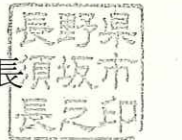 長
長野県
須坂市
長之印